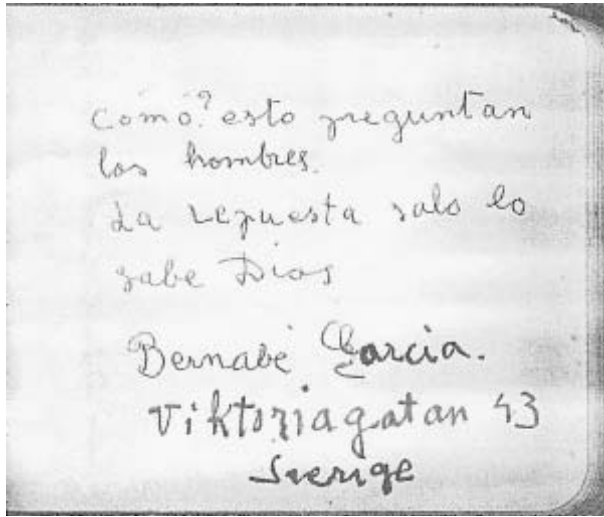 Como? esto preguntan
los hombres.
La repuesta solo lo
sabe Dios
Bernabé Garcia.
Viktoriagatan 43
Sverige